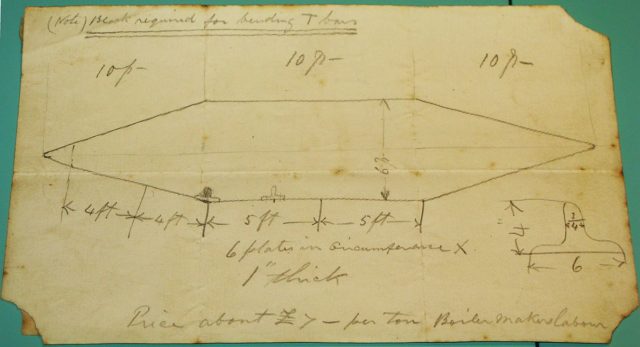 (Note) Block required for bending T bars
10ft 10ft 10ft
6ft
4ft 4ft 5ft 5ft
4 3/4 6
6 plates in Circumference X
1" thick
Price about £7 – per ton Boiler Makers labour